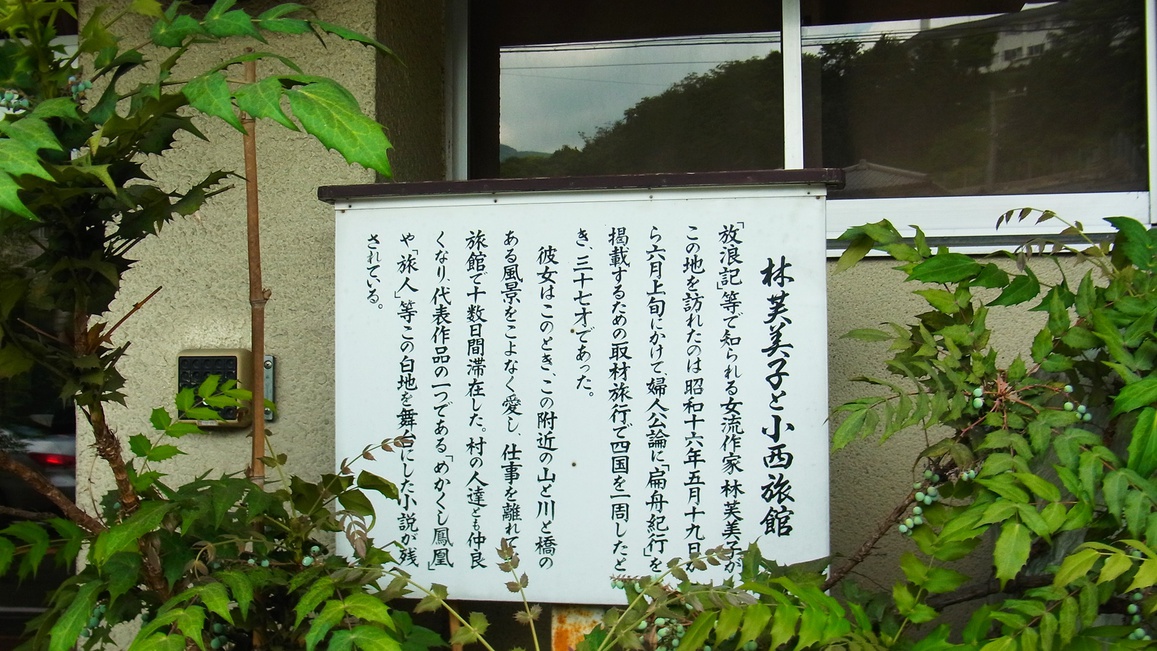 林芙美子と小西旅館
「放浪記」等で知られる女流作家 林芙美子が
この地を訪れたのは 昭和十六年五月十九日か
ら六月上旬にかけて、婦人公論に「扁舟紀行」を
掲載するための取材旅行で四国を一周したと
き、三十七才であった。
彼女はこのとき、この附近の山と川と橋の
ある風景をこよなく愛し、仕事を離れて
旅館で十数日間滞在した。村の人達とも仲良
くなり、代表作品の一つである「めかくし鳳凰」
や「旅人」等この白地を舞台にした小説が残
されている。